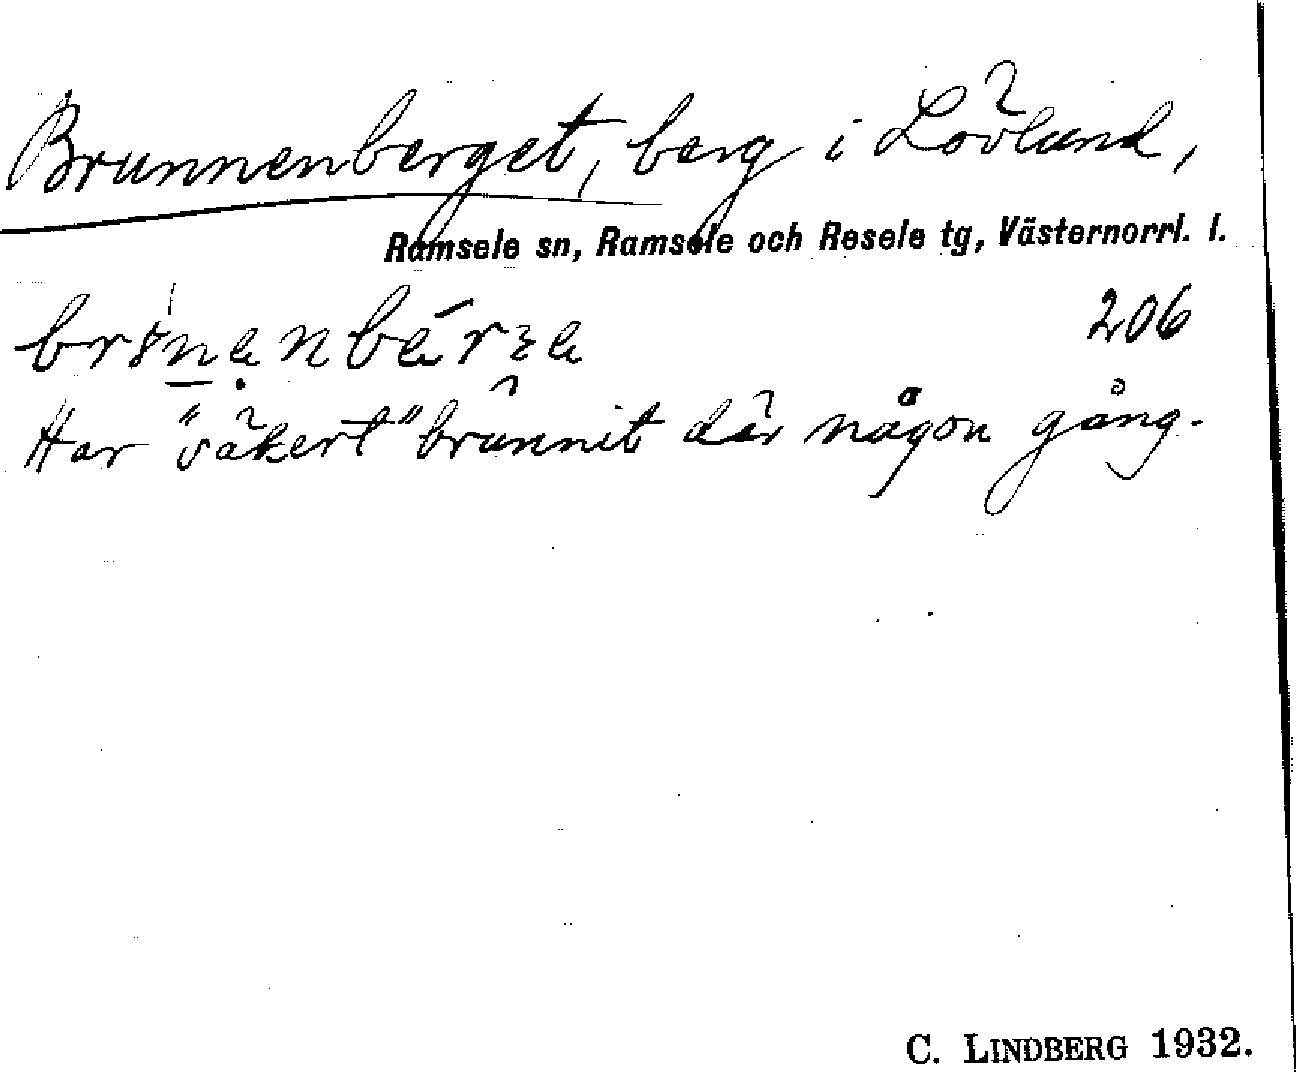 Brunnenberget, berg i Lövlund,
Ramsele sn, Ramsele och Resele tg, Västernorrl. l.
206
Har "säkert" brunnit där någon gång.
C. LINDBERG 1932.